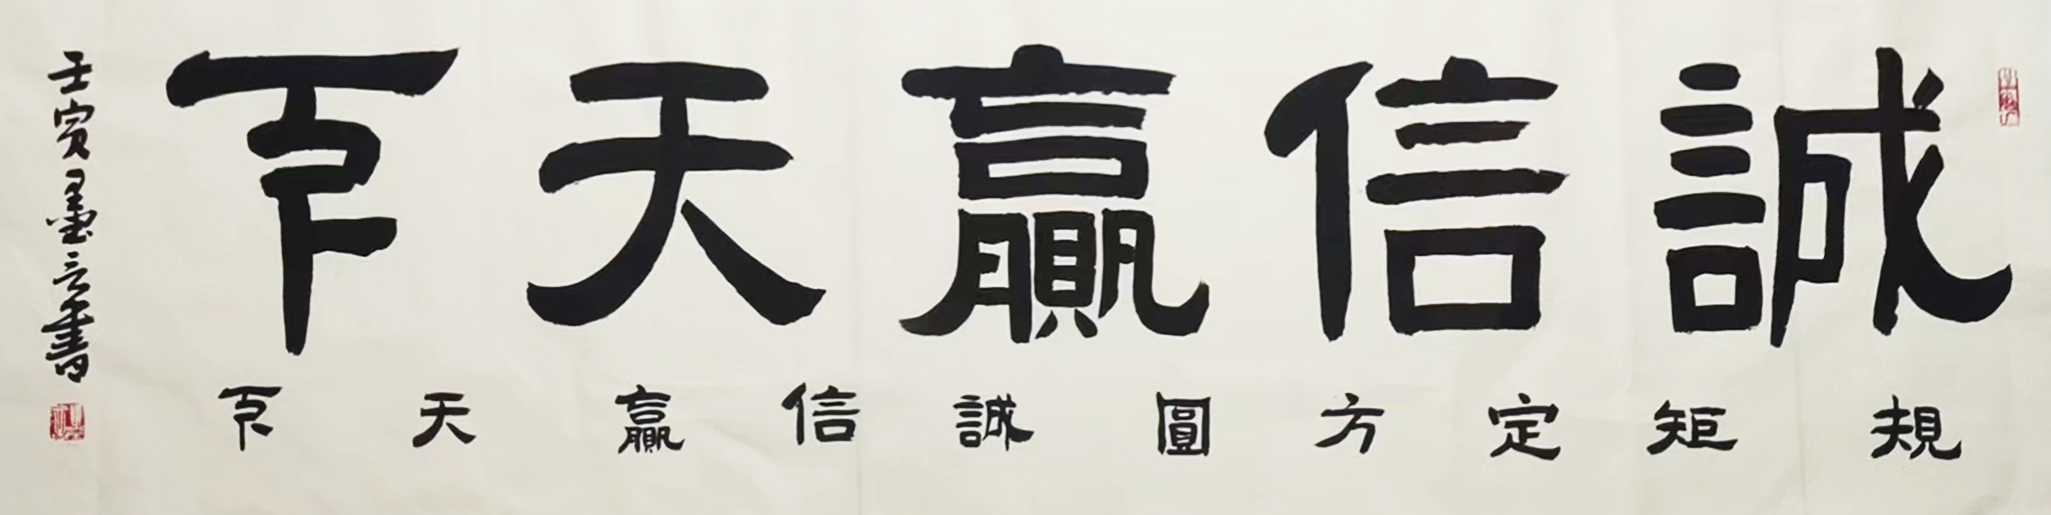 誠信贏天下
規矩定方圓誠信贏天下
壬寅墨言書